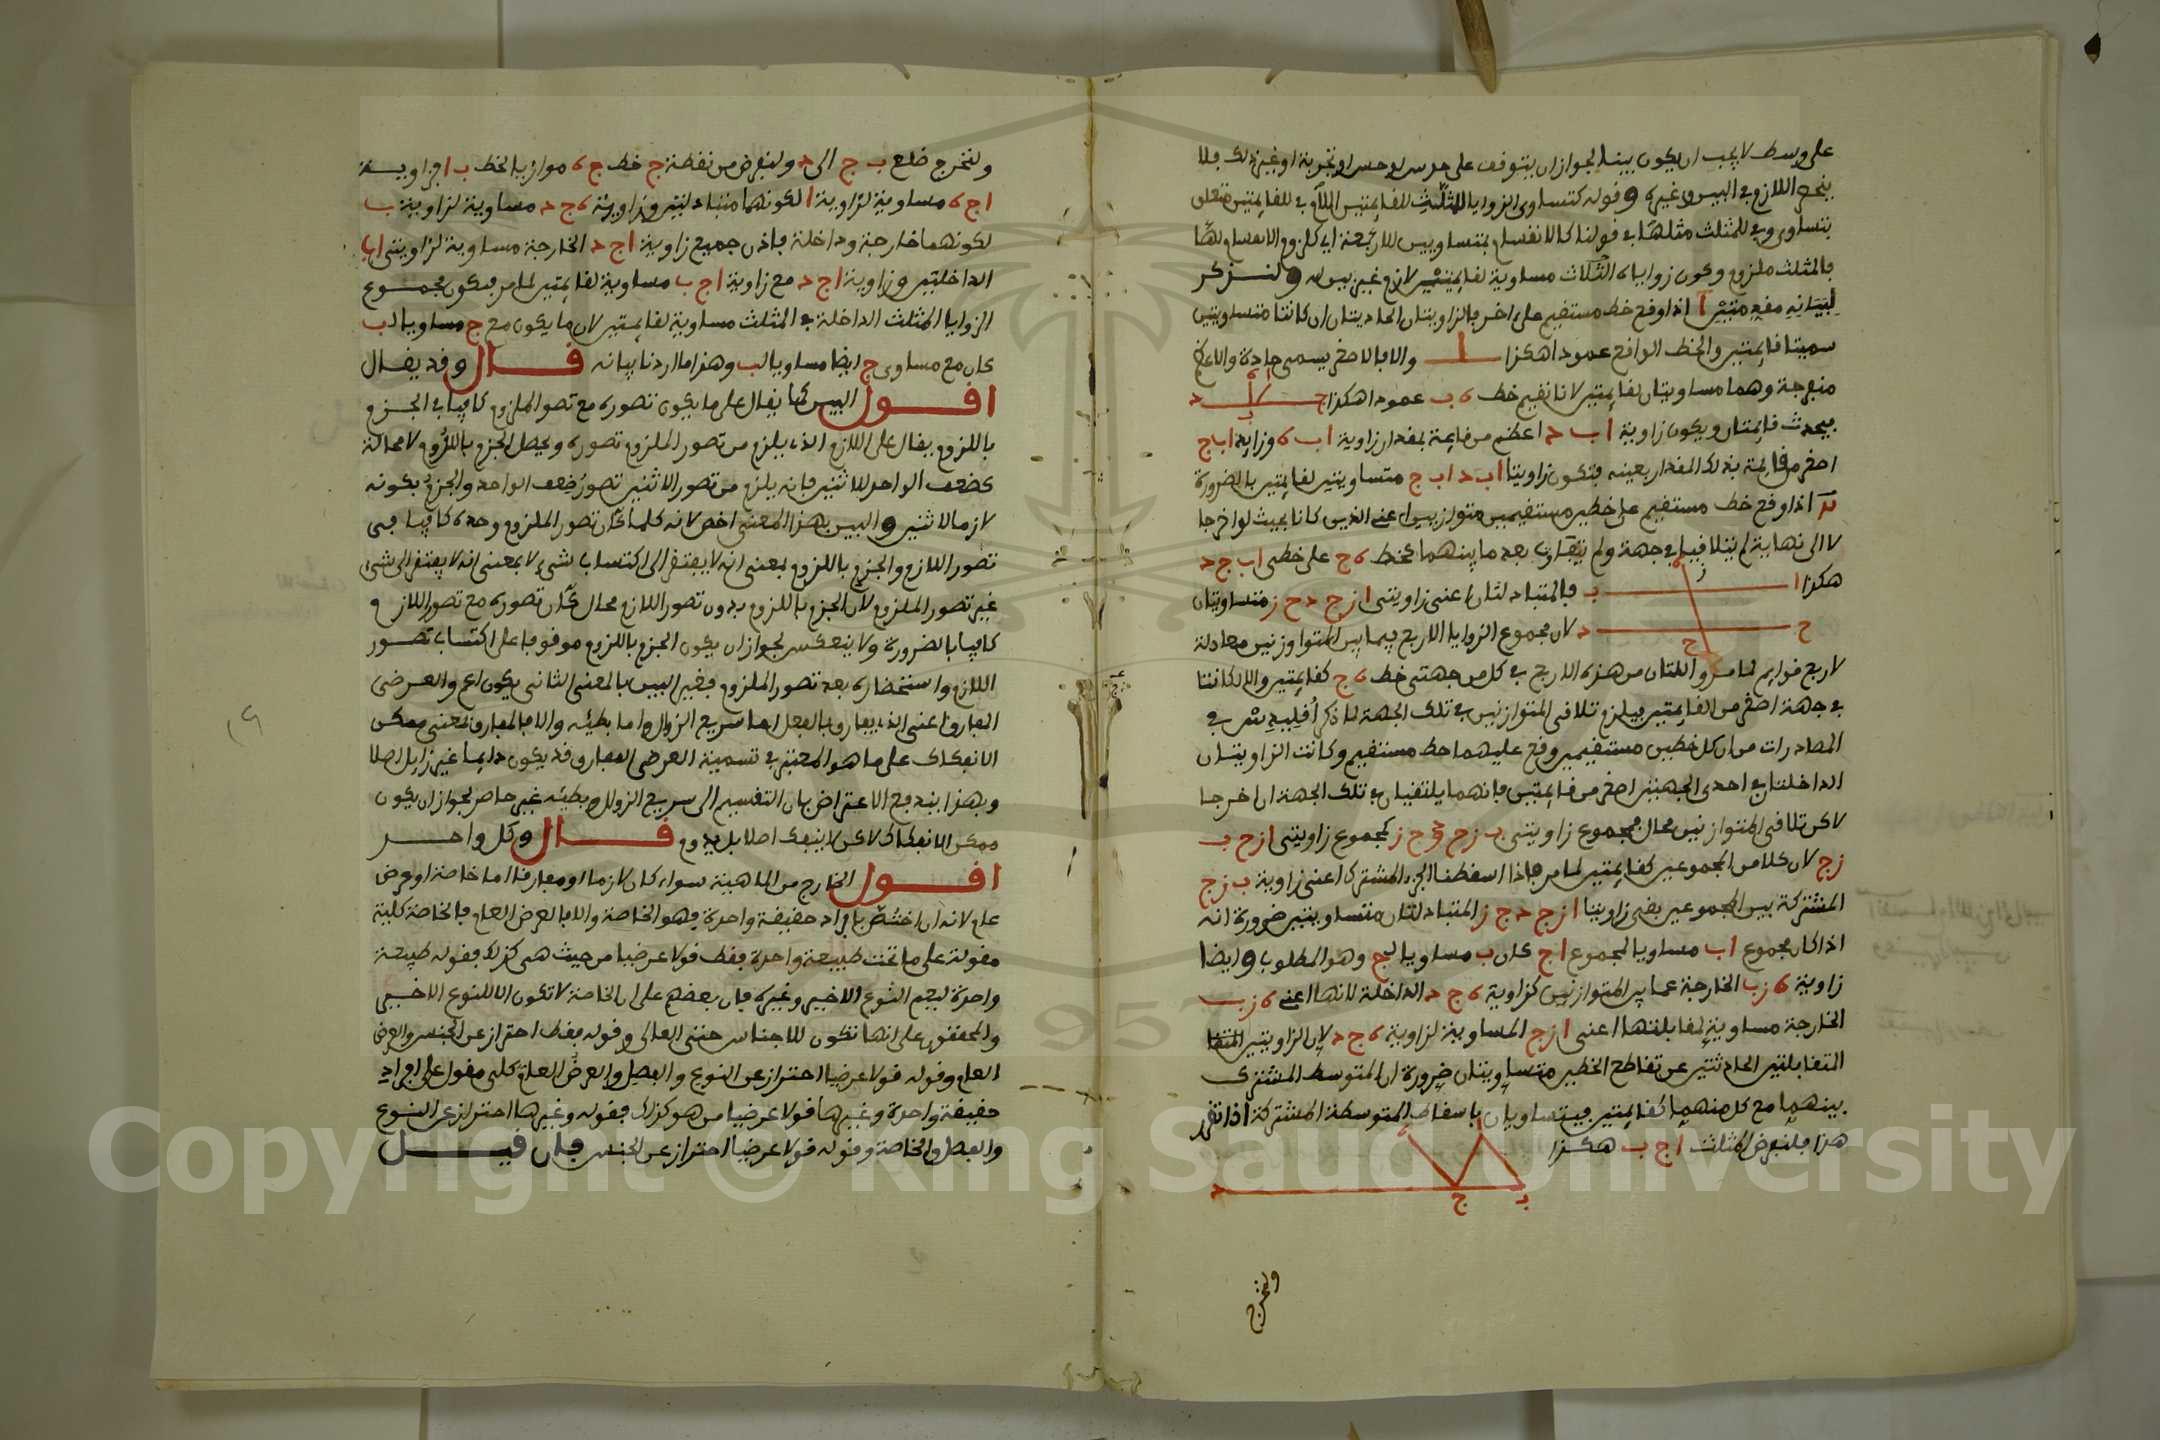 على وسط لا يجب ان يكون بينا لجواز ان يتوقف على حدس او حس او تجربة او غير ذلك فلا
ينحصر اللازم في البين وغيره وقوله كتساوي الزوايا الثلث للقائمتين اللام في للقائمتين متعلق
بتساوي وفي للمثلث مثلها في قولنا كالانقسام بمتساويين للاربعة اي كلزوم الانقسام لها
فالمثلث ملزوم وكون زواياه الثلاث مساوية لقائمتين لازم غير بين له ولنذكر
لبيانه مقدمتين ا اذا وقع خط مستقيم على اخر فالزاويتان الحادثتان ان كانتا متساويتين
سميتا قائمتين والخط الواقع عمودا هكذا والا فالاصغر يسمى حادة والاعظم
منفرجة وهما مساويتان لقائمتين لانا نقيم خط ه ب عمودا هكذا
ا ه ج ب د
فيحدث قائمتان ويكون زاوية ا ب د اعظم من قائمة بمقدار زاوية ا ب ه وزاوية ا ب ج
اصغر من قائمة بذلك المقدار بعينه فتكون زاويتا ا ب د ا ب ج متساويتين لقائمتين بالضرورة
ب اذا وقع خط مستقيم على خطين مستقيمين متوازيين اعني الذين كانا بحيث لو اخرجا
لا الى نهاية لم يتلاقيا في جهة ولم يتقارب بعد ما بينهما كخط ه ج على خطي ا ب ج د
هكذا ا ب ه ز فالمتبادلتان اعني زاويتي ا ز ح د ح ز متساويتان
ج د ح لان مجموع الزوايا الاربع فيما بين المتوازيين معادلة
لاربع قوائم لما مر واللتان من هذه الاربع في كل من جهتي خط ه ج كقائمتين والا لكانتا
في جهة اصغر من القائمتين فيلزم تلاقي المتوازيين في تلك الجهة لما ذكر اقليدس في
المصادرات من ان كل خطين مستقيمين وقع عليهما خط مستقيم وكانت الزاويتان
الداخلتان في احدى الجهتين اصغر من قائمتين فانهما يلتقيان في تلك الجهة ان اخرجا
لاكن تلاقي المتوازيين محال فمجموع زاويتي ب ز ح د ح ز كمجموع زاويتي ا ز ح ب
ز ج لان كلا من المجموعين كقائمتين لما مر فاذا اسقطنا الجزء المشترك اعني زاوية ب ز ج
المشتركة بين المجموعين بقي زاويتا ا ز ج د ج ز المتبادلتان متساويتين ضرورة انه
اذا كان مجموع ا ب مساويا لمجموع ا ج كان ب مساويا لج وهو المطلوب وايضا
زاوية ه ز ب الخارجة عما بين المتوازيين كزاوية ه ج د الداخلة لانها اعني ه ز ب
الخارجة مساوية لمقابلتها اعني ا ز ج المساوية لزاوية ه ج د لان الزاويتين المتقا
المتقابلتين الحادثتين عن تقاطع الخطين متساويتان ضرورة ان المتوسطة المشتركة
بينهما مع كل منهما كقائمتين فيتساويان باسقاط المتوسطة المشتركة اذا تقرر
هذا فلنفرض المثلث ا ج ب هكذا
ا ه ب ج د
ولنخرج
ولنخرج ضلع ب ج الى د ولنفرض من نقطة ج خط ج ه موازيا لخط ب ا فزاوية
ا ج ه مساوية لزاوية ا لكونهما متبادلتين وزاوية ه ج د مساوية لزاوية ب
لكونهما خارجة وداخلة فاذن جميع زاوية ا ج د الخارجة مساوية لزاويتي ا ب
الداخلتين وزاوية ا ج د مع زاوية ا ج ب مساوية لقائمتين لما مر فيكون مجموع
الزوايا المثلث الداخلة في المثلث مساوية لقائمتين لان ما يكون مع ج مساويا لب
كان مع مساوي ج ايضا مساويا لب وهذا ما اردنا بيانه قال وقد يقال
اقول البين كما يقال على ما يكون تصوره مع تصور الملزوم كافيا في الجزم
باللزوم يقال على اللازم الذي يلزم من تصور الملزوم تصوره ويحصل الجزم باللزوم لا محالة
كضعف الواحد للاثنين فانه يلزم من تصور الاثنين تصور ضعف الواحد والجزم بكونه
لازما لاثنين والبين بهذا المعنى اخص لانه كلما كان تصور الملزوم وحده كافيا في
تصور اللازم والجزم باللزوم بمعنى انه لا يفتقر الى اكتساب شيء لا بمعنى انه لا يفتقر الى شيء
غير تصور الملزوم لان الجزم باللزوم بدون تصور اللازم محال كان تصوره مع تصور اللازم
كافيا بالضرورة ولا ينعكس لجواز ان يكون الجزم باللزوم موقوفا على اكتساب تصور
اللازم واستحضاره بعد تصور الملزوم فغير البين بالمعنى الثاني يكون اعم والعرضي
المفارق اعني الذي يفارق بالفعل اما سريع الزوال واما بطيئه والا فالمفارق بمعنى ممكن
الانفكاك على ما هو المعتبر في تسمية العرضي المفارق قد يكون دايما غير زايل اصلا
وبهذا يندفع الاعتراض بان التقسيم الى سريع الزوال وبطيئه غير حاصر لجواز ان يكون
ممكن الانفكاك لاكن لا ينفك اصلا بل يدوم قال وكل واحد
اقول الخارج من الماهية سواء كان لازما او مفارقا اما خاصة او عرض
عام لانه ان اختص بافراد حقيقة واحدة فهو الخاصة والا فالعرض العام فالخاصة كلية
مقولة على ما تحت طبيعة واحدة فقط قولا عرضيا من حيث هي كذلك فقوله طبيعة
واحدة ليعم النوع الاخير وغيره فان بعضهم على ان الخاصة لا تكون الا للنوع الاخير
والمحققون على انها تكون للاجناس حتى العالي وقوله فقط احتراز عن الجنس والعرض
العام وقوله قولا عرضيا احتراز عن النوع والفصل والعرض العام كلي مقول على افراد
حقيقة واحدة وغيرها قولا عرضيا من هو كذلك فقوله وغيرها احتراز عن النوع
والفصل والخاصة وقوله قولا عرضيا احتراز عن الجنس فان قيل
١٩
Copyright © King Saud University
1957